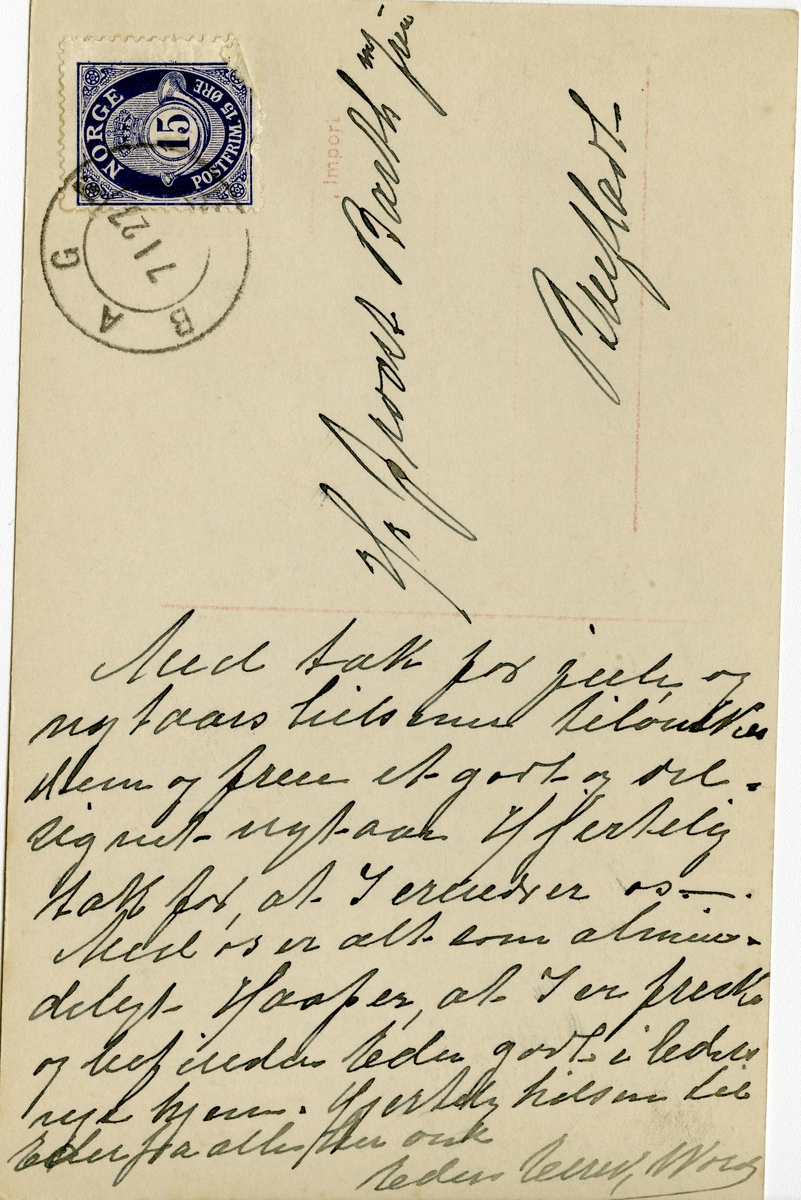 NORGE
15
POSTFRIM. 15 ØRE
BAG
7 I 23
Import
Hr Provst Barth m/ frue
Med tak for jule og
nytaars hilsenen tilønskes
dem og frue et godt og vel-
signet nytaar Hjertelig
takk for, at I erindrer os.
Med os er alt som almin-
deligt Haaper, at I er friske
og befinder Eder godt i Eders
nye hjem. Hjertelig hilsen til
Eder fra alle her
Eders